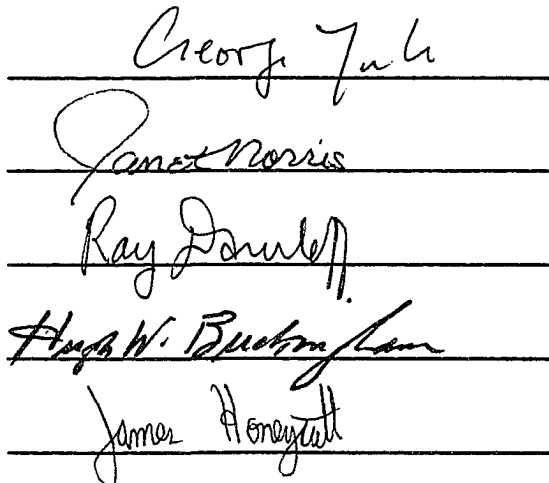 George
Janet Norris
Ray
Hugh W. Buckingham
James Honeycutt